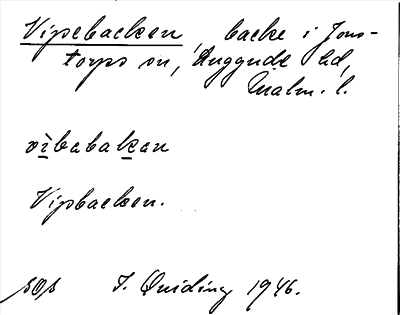 Vipebacken, backe i Jons-
torps sn, Luggude hd,
Malm. l.
vìbabakan
Vipbacken.
sOs I. Quiding 1946.